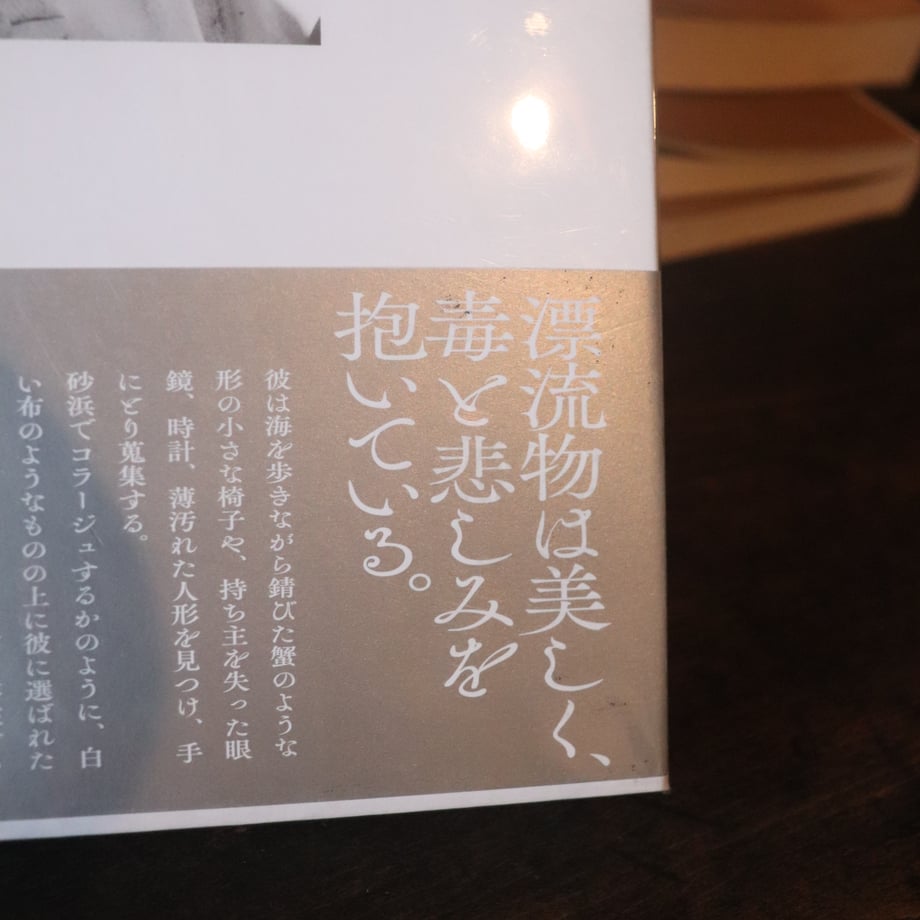 漂流物は美しく、
毒と悲しみを
抱いている。
彼は海を歩きながら錆びた蟹のような
形の小さな椅子や、持ち主を失った眼
鏡、時計、薄汚れた人形を見つけ、手
にとり蒐集する。
砂浜でコラージュするかのように、白
い布のようなものの上に彼に選ばれた